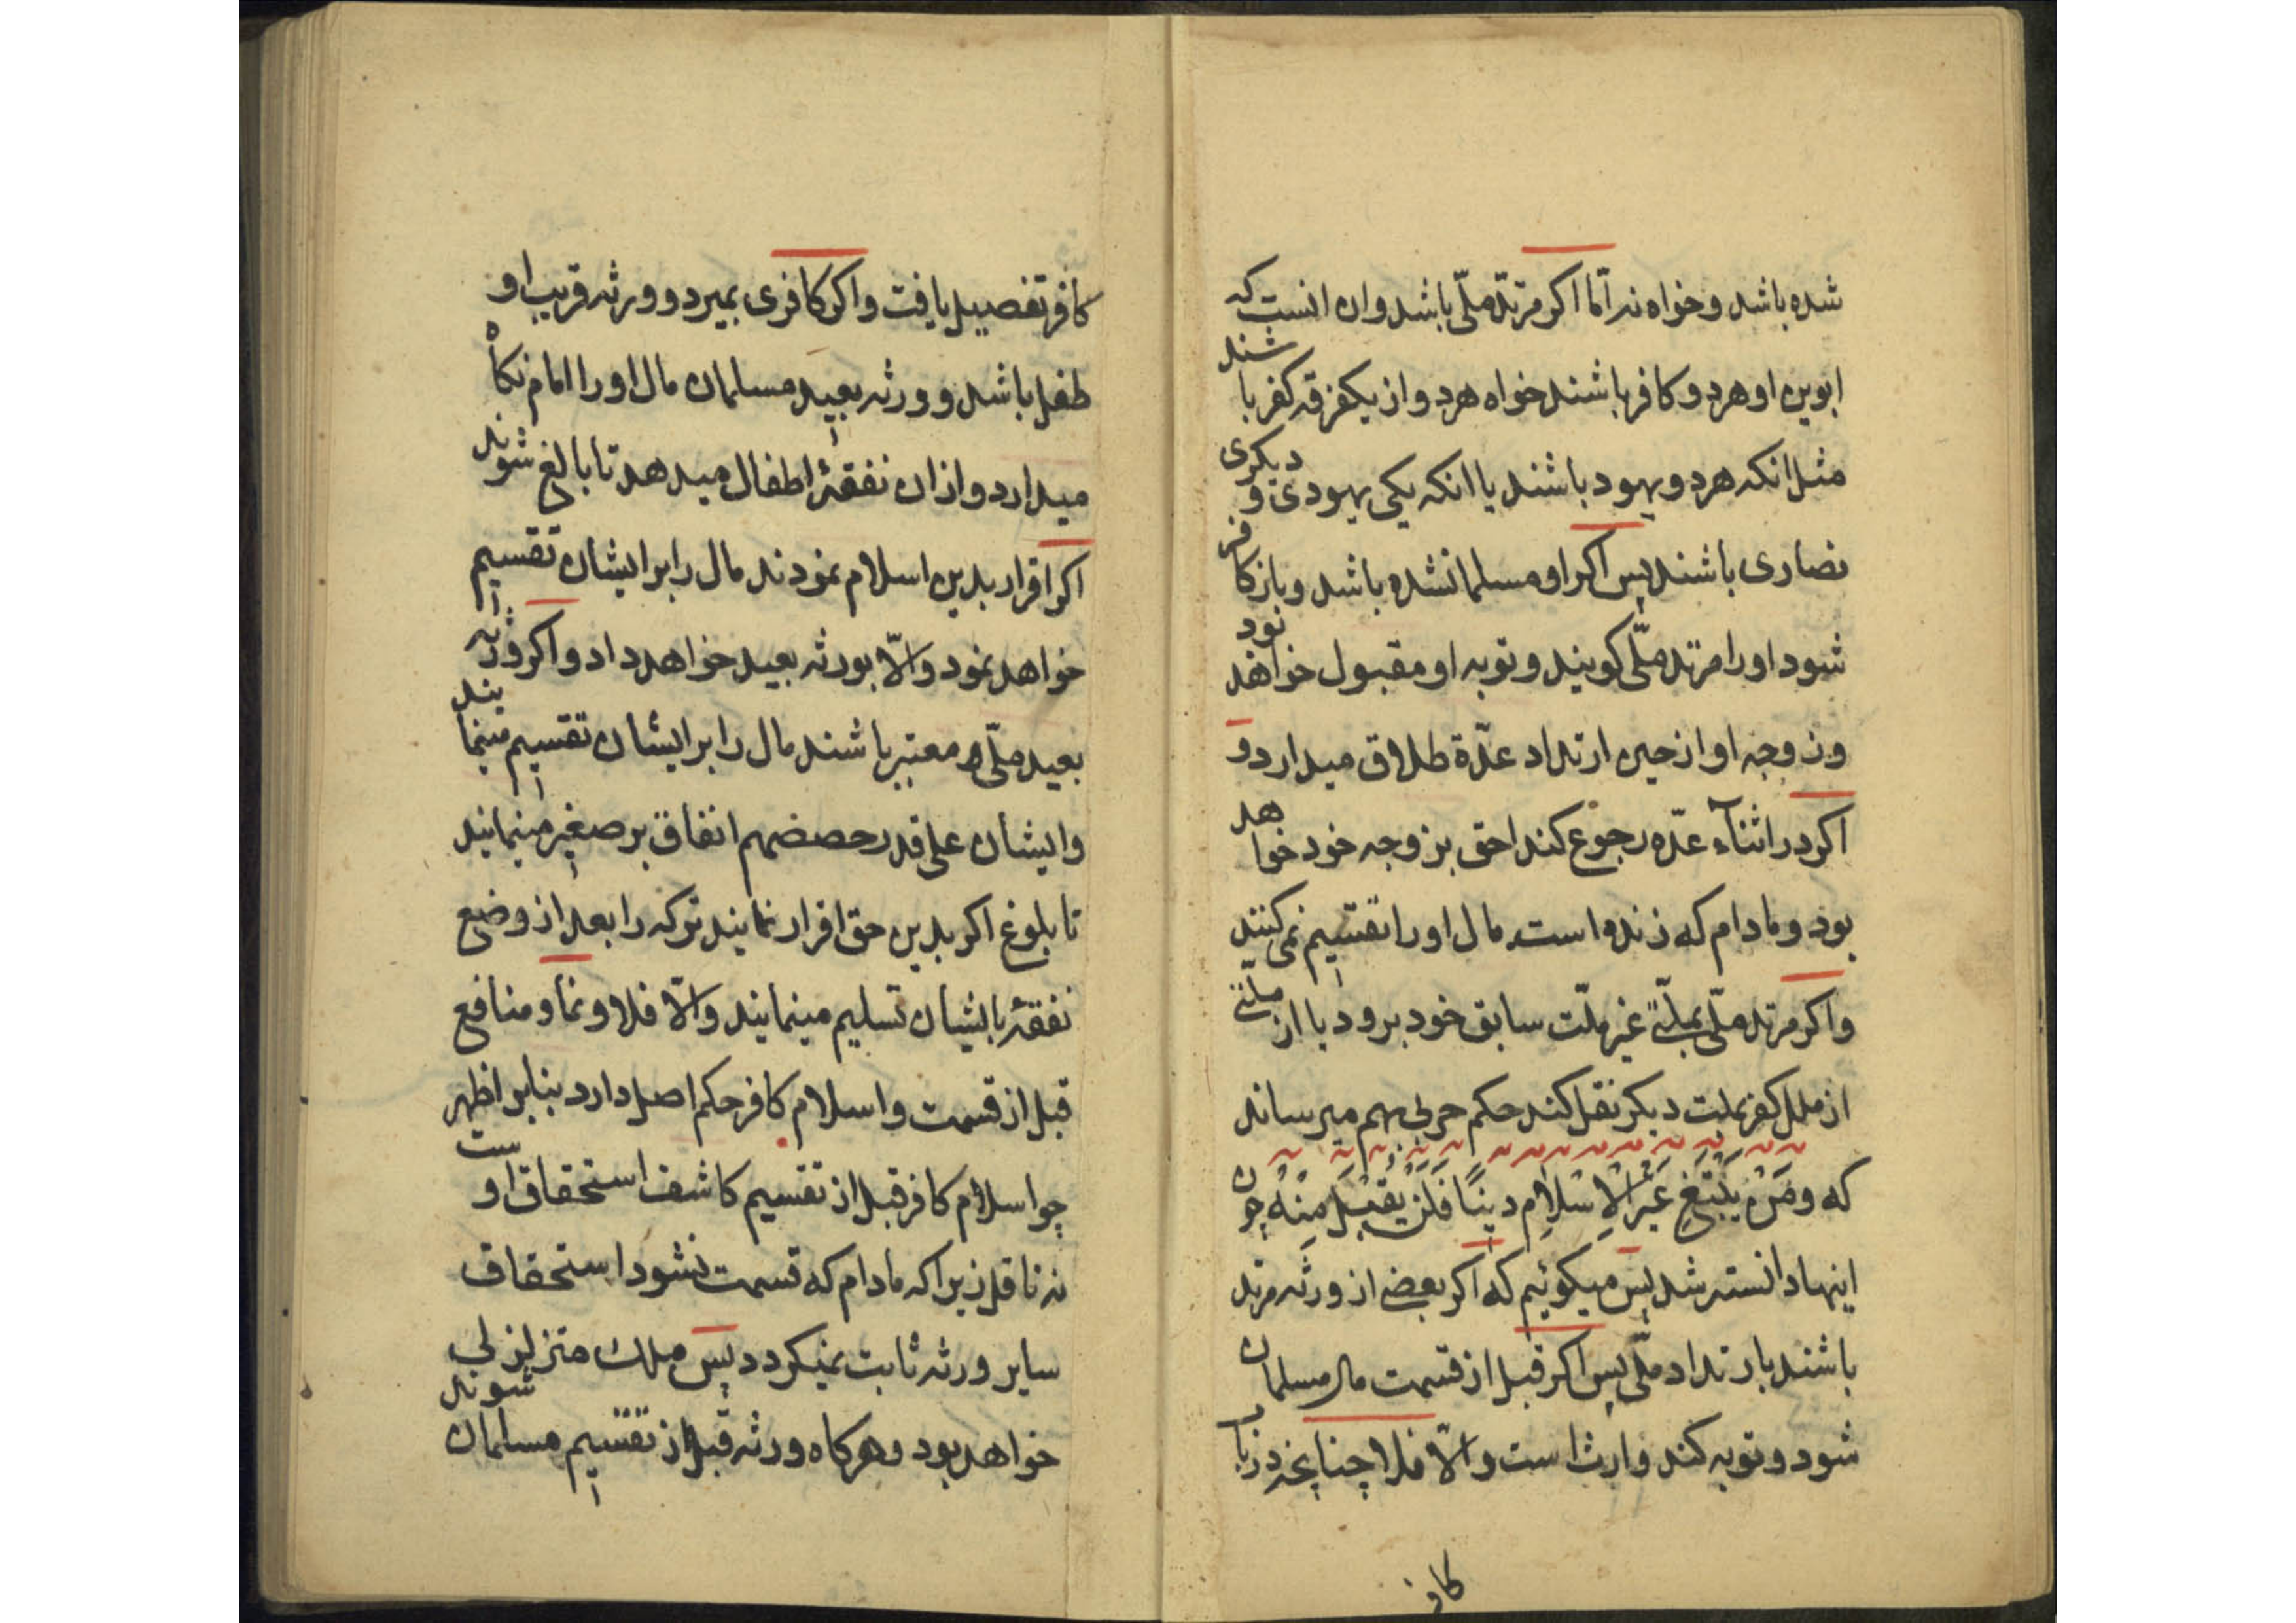 شده باشد و خواه نه امّا اکر مرتدّ ملّی باشد وان انست که
ابوین او هر دو کافر باشند خواه هر دو از یکفرقه کفر باشند
مثل انکه هر دو یهود باشند یا انکه یکی یهودی و دیکری
نصاری باشند پس اکر او مسلمانشده باشد و باز کافر
شود او را مرتد ملّی کویند و توبه او مقبول خواهد بود
و زوجه او از حین ارتداد عدّة طلاق میدارد و
اکر در اثنآء عدّه رجوع کند احق بزوجه خود خواهد
بود و مادام که زنده است مال او را تقسیم نمی کنند
و اکر مرتد ملّی بملّتی غیر ملّت سابق خود برود یا از ملّتی
از ملل کفر بملت دیکر نقل کند حکم حربی بهم میرساند
که وَمَنْ یَبْتَغِ غَیْرَ الاِسْلامِ دینًا فَلَنْ یُقْبَلَ مِنْهُ چون
اینها دانسته شد پس میکوئیم که اکر بعضی از ورثه مرتد
باشند بارتداد ملّی پس اکر قبل از قسمت مال مسلمان
شود و توبه کند وارث است و الّا فلا چنانچه در باب
کافر
کافر تفصیل یافت و اکر کافری بمیرد و ورثه قریب او
طفل باشد و ورثه بعید مسلمان مال او را امام نکاه
میدارد و از ان نفقهٔ اطفال میدهد تا بالغ شوند
اکر اقرار بدین اسلام نمودند مال را بر ایشان تقسیم
خواهد نمود و الّا بورثه بعید خواهد داد و اکر ورثه
بعید ملّی معتبر باشند مال را بر ایشان تقسیم مینمایند
و ایشان علی قدر حصصهم انفاق بر صغیر مینمایند
تا بلوغ اکر بدین حق اقرار نمایند ترکه را بعد از وضع
نفقه بایشان تسلیم مینمایند و الّا فلا و نما و منافع
قبل از قسمت و اسلام کافر حکم اصل دارد بنابر اظهر
چو اسلام کافر قبل از تقسیم کاشف استحقاق او است
نه ناقل زیرا که مادام که قسمت نشود استحقاق
سایر ورثه ثابت نمیکردد پس ملک متزلزلی
خواهد بود و هرکاه ورثه قبل از تقسیم مسلمان شوند